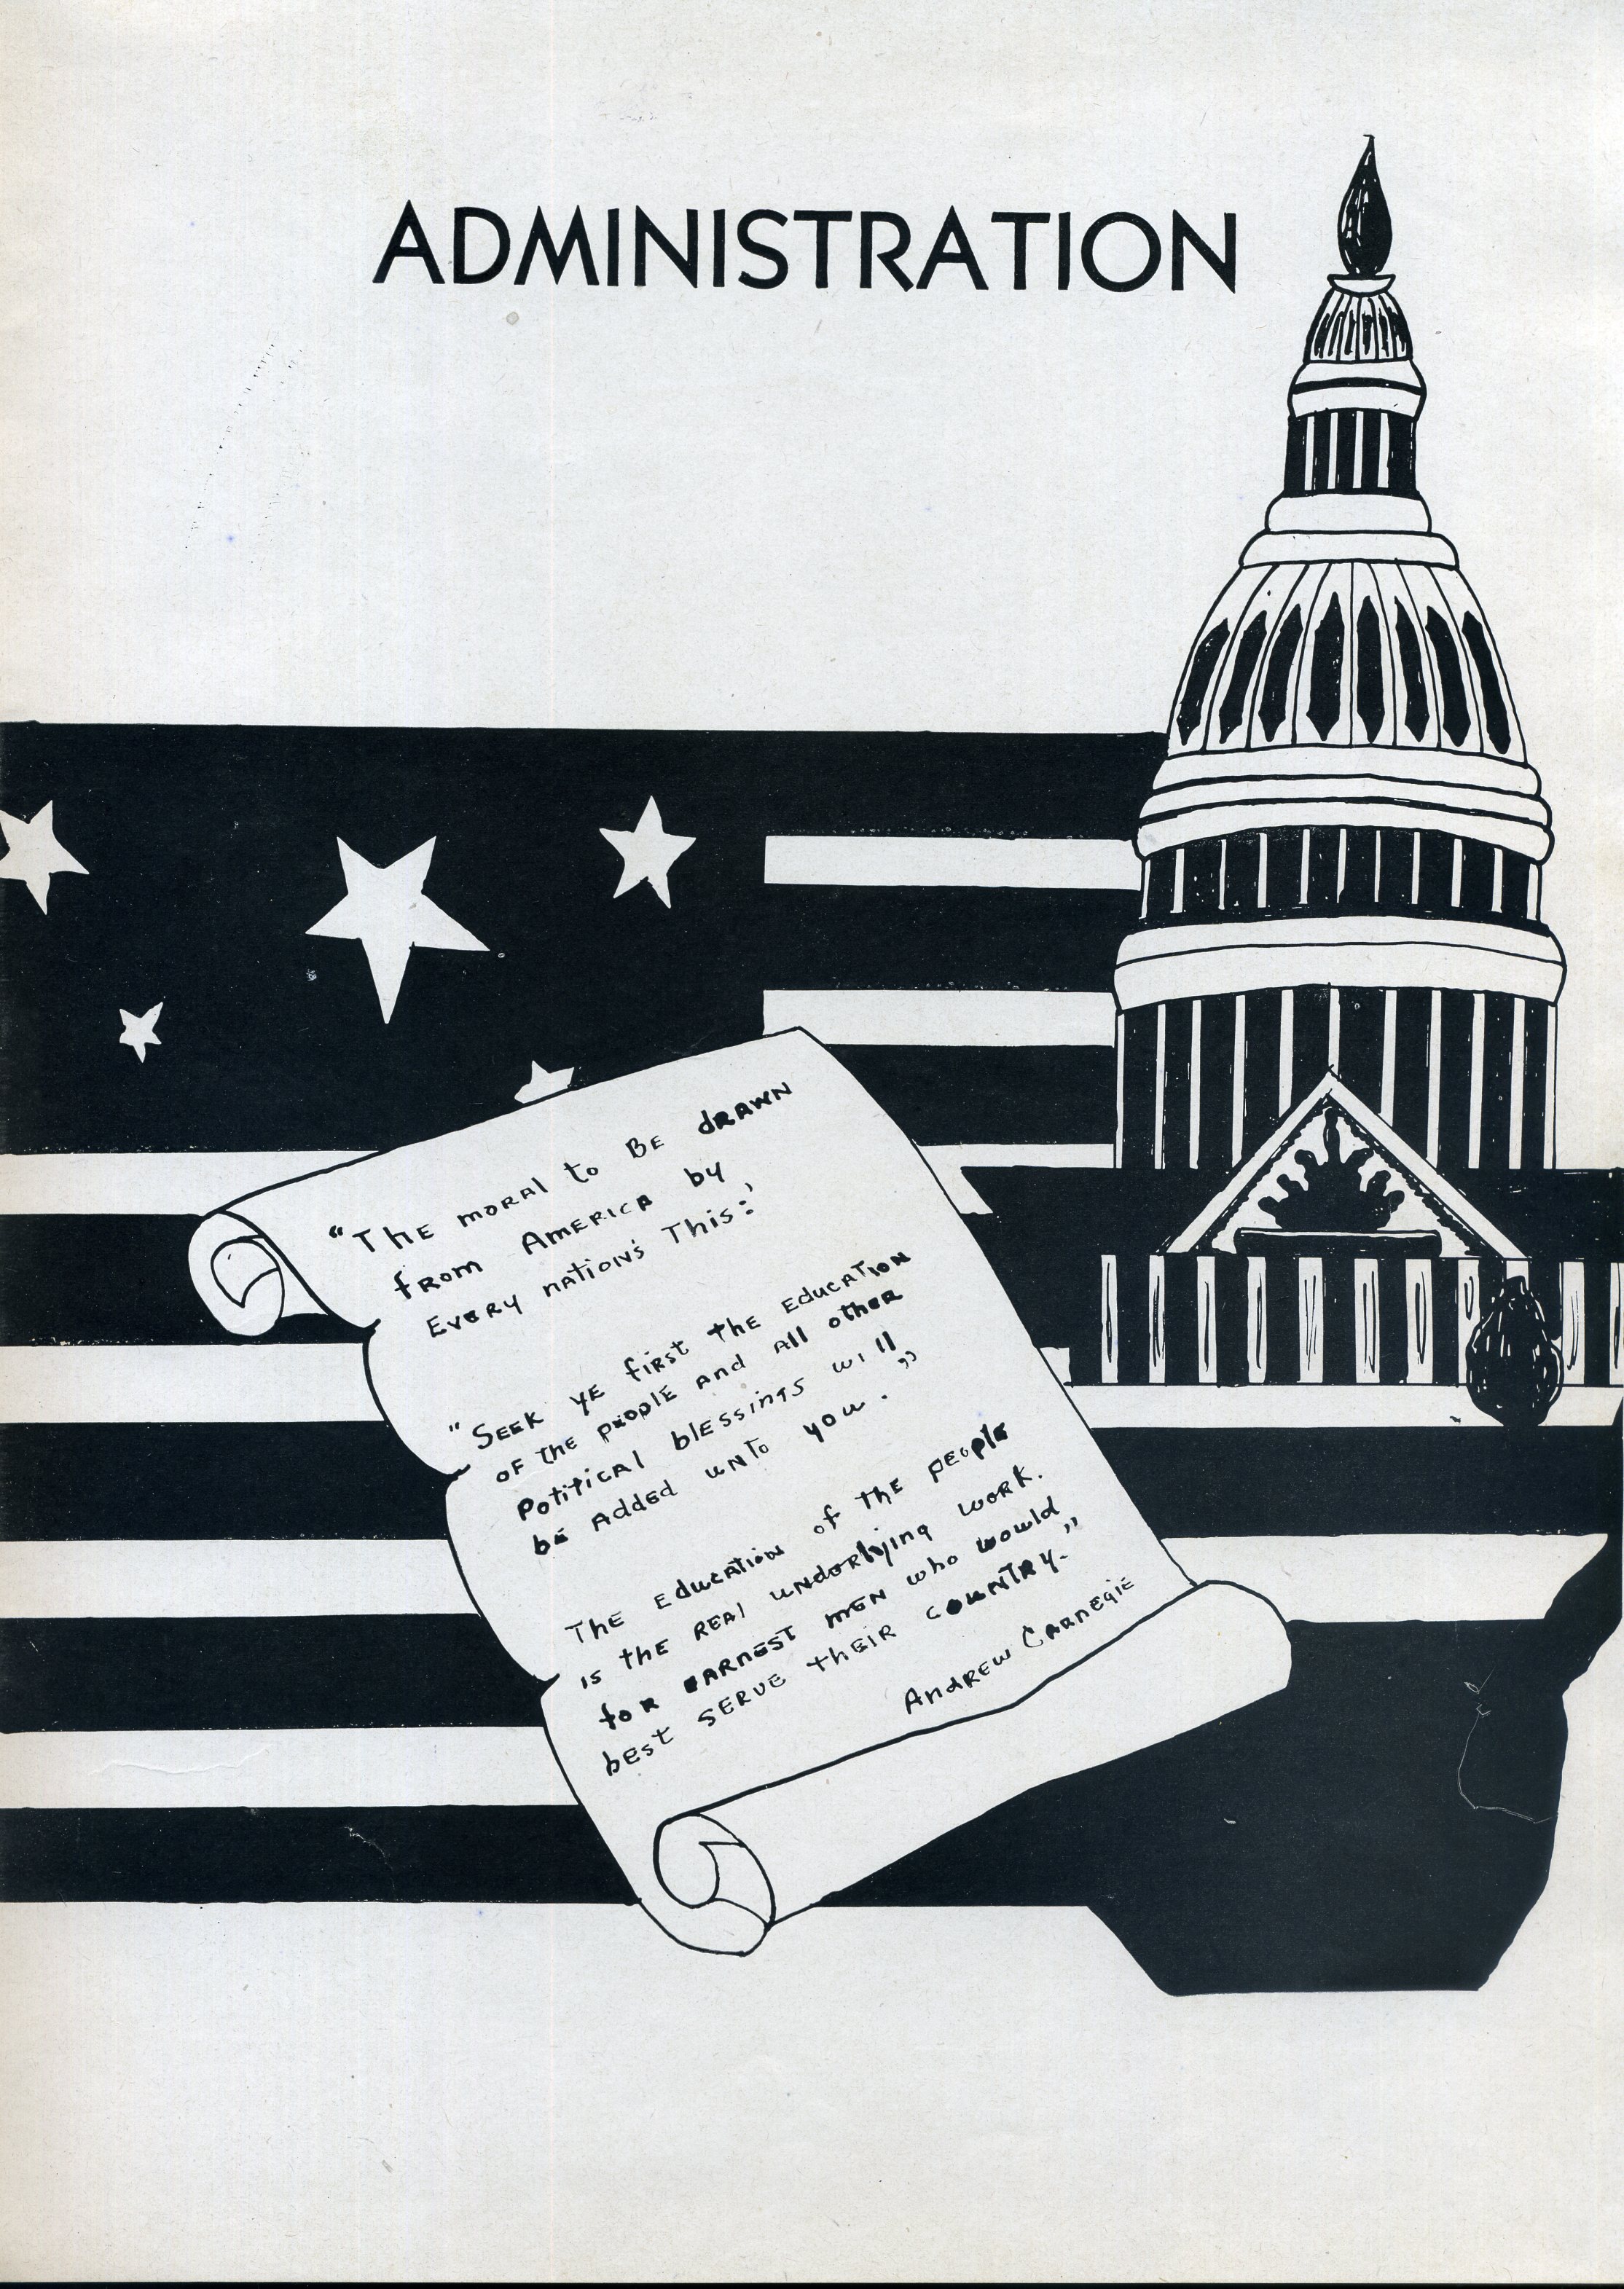 ADMINISTRATION
"The moral to BE drAWN
from America by
Every nation's This:'
"SEEK YE first The Education
OF the people And All other
Potitical blEssings will
be Added unto you."
The Education of The people
is the REAl underlying work.
for EARNEST MEN who would
best SERVE their COUNTRY."
Andrew Carnegie